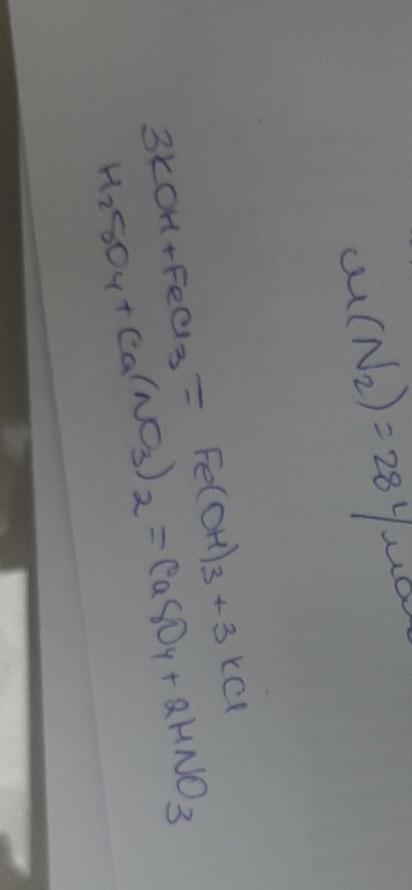 M(N2) = 28 г/мол
3KOH + FeCl3 = Fe(OH)3 + 3KCl
H2SO4 + Ca(NO3)2 = CaSO4 + 2HNO3